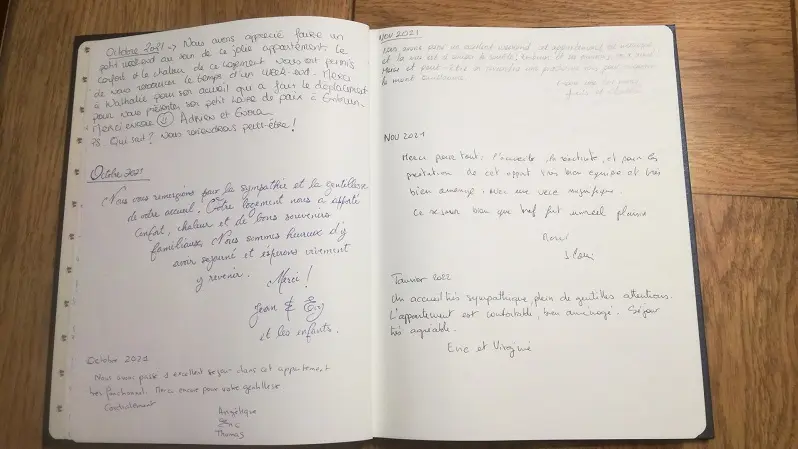 Octobre 2021 -> Nous avons apprécié faire un
petit weekend au sein de ce jolie appartement. Le
confort et la chaleur de ce logement nous ont permis
de nous ressourcer le temps d'un week-end. Merci
à Nathalie pour son accueil qui a fais le déplacement
pour nous présenter son petit havre de paix à Embrun.
Merci encore ☺ Adrien et
PS. Qui sait? Nous reviendrons peut-être!
Octobre 2021
Nous vous remercions pour la sympathie et la gentillesse
de votre accueil. Votre logement nous a apporté
confort, chaleur et de bons souvenirs
familiaux. Nous sommes heureux d'y
avoir séjourné et espérons vivement
y revenir.
Merci!
Jean &
et les enfants.
Octobre 2021
Nous avons passé 1 excellent séjour dans cet appartement
très fonctionnel. Merci encore pour votre gentillesse
Cordialement
Angélique
Eric
Thomas
Nov 2021
Nous avons passé un excellent weekend, et appartement est
et la vue est
Merci et peut-être
le mont
Nov 2021
Merci pour tout: l'accueil, la réactivité, et pour les
prestations de cet appart très bien équipé et très
bien aménagé. Avec une vue magnifique.
Ce séjour bien que bref fut un réel plaisir
Merci
Janvier 2022
Un accueil très sympathique, plein de gentilles attentions.
L'appartement est confortable, bien aménagé. Séjour
très agréable.
Eric et Virginie